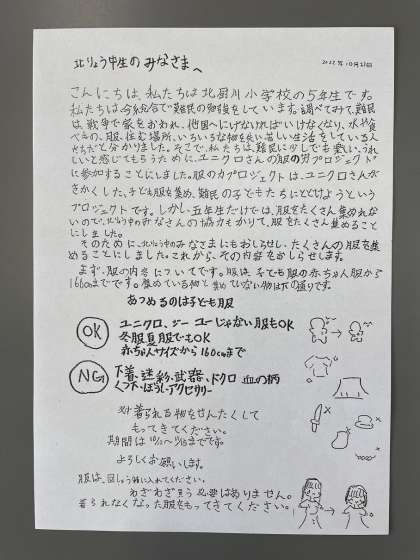 北りょう中生のみなさまへ
2022年10月21日
こんにちは、私たちは北厨川小学校の5年生です。
私たちは今総合で難民の勉強をしています。調べてみて、難民
は、戦争で家をおわれ、他国へにげなければいけなくなり、水や食
べもの、服、住む場所、いろいろな物を失い苦しい生活をしている人
たちだと分かりました。そこで、私たちは、難民に少しでも楽しい、うれ
しいと感じてもらうために、ユニクロさんの服の力プロジェクト
に参加することにしました。服の力プロジェクトは、ユニクロさんが
きかくした、子ども服を集め、難民の子どもたちにとどけようという
プロジェクトです。しかし、五年生だけでは、服をたくさん集められな
いので、北りょう中のみなさんの協力もかりて、服をたくさん集めること
にしました。
そのために、北りょう中のみなさまにもおしらせし、たくさんの服を集
めることにしました。これから、その内容をおしらせします。
まず、服の内容についてです。服は、子ども服の赤ちゃん服から
160cmまでです。集めている物と集めていない物は下の通りです。
あつめるのは子ども服
OK ユニクロ、ジーユーじゃない服もOK
冬服夏服でもOK
赤ちゃんサイズから160cmまで
NG 下着、迷彩、武器、ドクロ 血の柄
くつ下・ぼうし・アクセサリー
着られる物をせんたくして
もってきてください。
期間は までです。
よろしくお願いします。
服は、 に入れてください。
わざわざ買う必要はありません。
着られなくなった服をもってきてください。